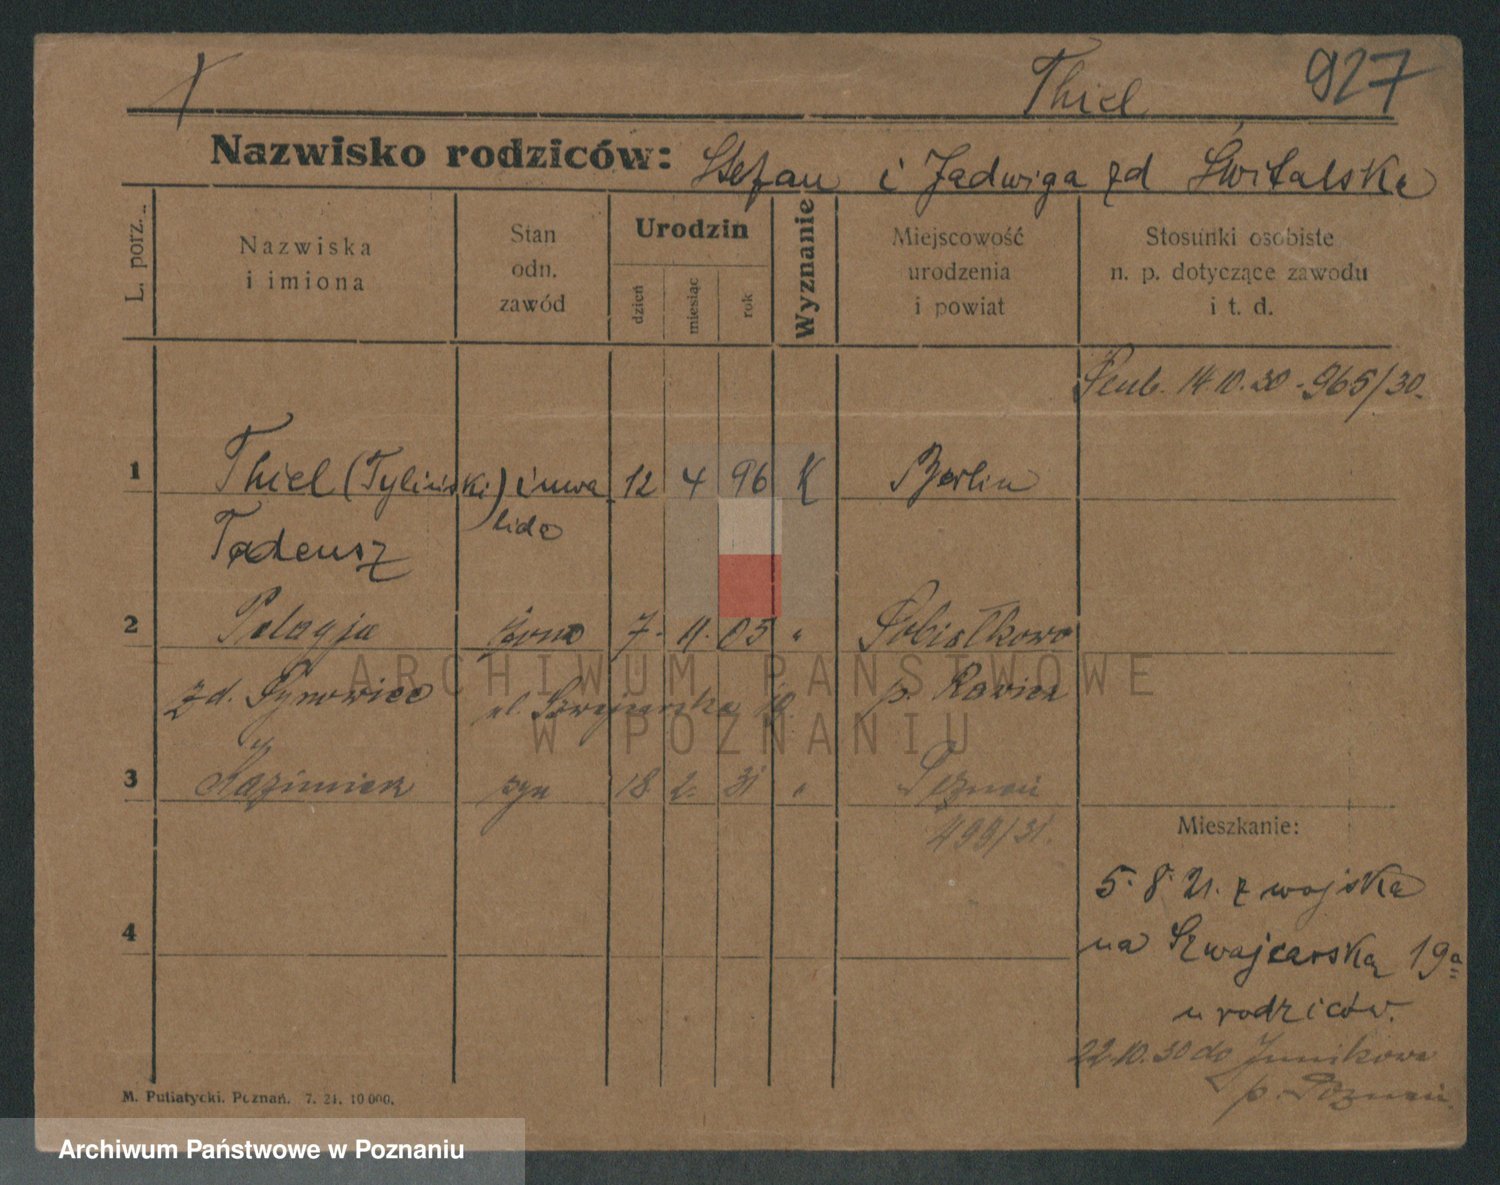 Thiel 927
Nazwisko rodziców: Stefan i Jadwiga zd Świtalska
L. porz.
Nazwiska
i imiona
Stan
odn.
zawód
Urodzin
dzień
miesiąc
rok
Wyznanie
Miejscowość
urodzenia
i powiat
Stosunki osobiste
n. p. dotyczące zawodu
i t. d.
14.10.30 - 965/30.
1 Thiel (Tyliński) inwa 12 4 96 K Berlin
lida
Tadeusz
2 Pelagja żona 7. 11. 05 " Sobiałkowo
zd. ul. Szwajcarska 19. p. Rawicz
3 Kazimierz syn 18 2. 31 " Poznań
499/31.
Mieszkanie:
5. 8. 21. z wojska
4
na Szwajcarską 19a
u rodziców.
22.10.30 do Junikowa
p. Poznań.
M. Putiatycki. Poznań. 7. 21. 10 000.
ARCHIWUM PAŃSTWOWE
W POZNANIU
Archiwum Państwowe w Poznaniu